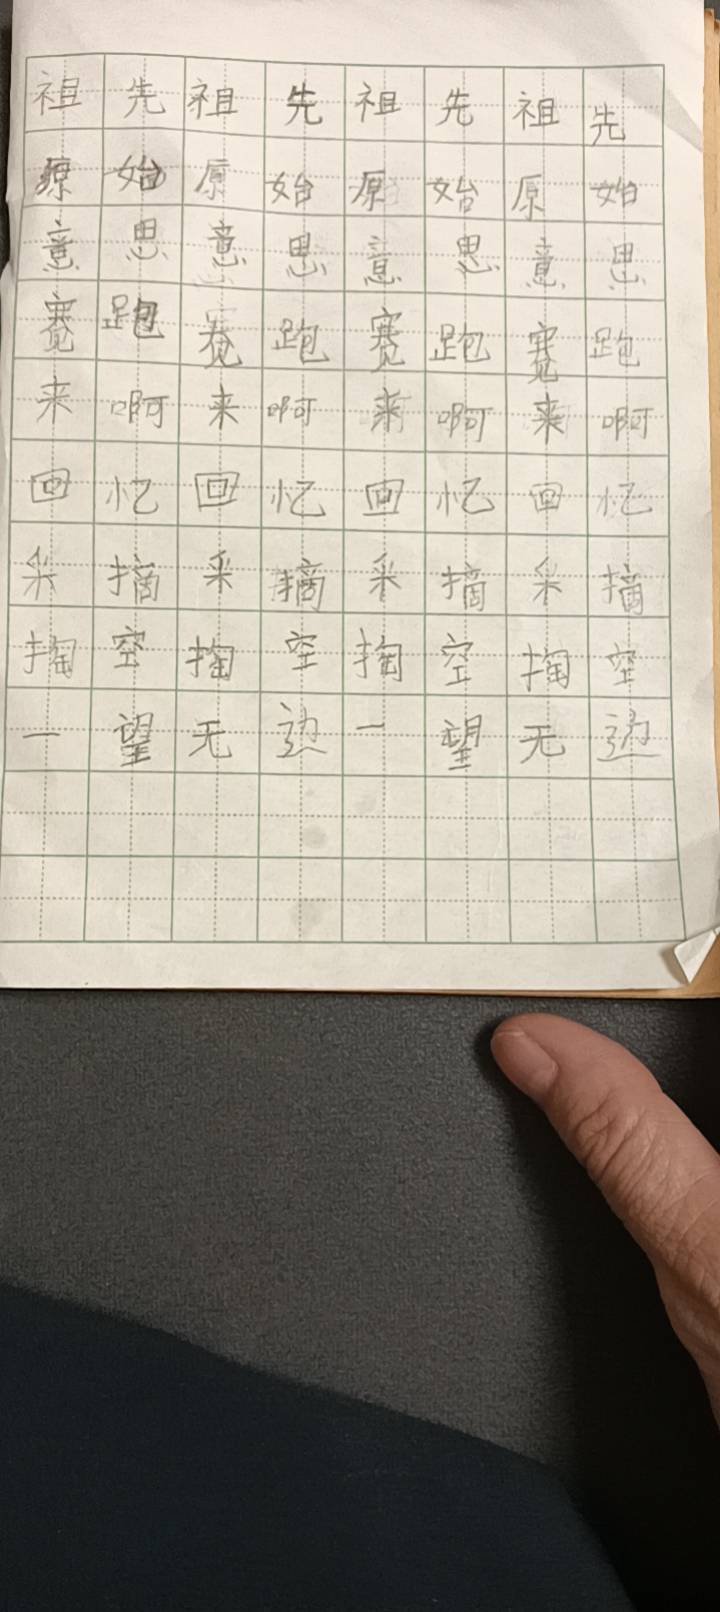 祖先祖先祖先祖先
原始原始原始原始
意思意思意思意思
赛跑赛跑赛跑赛跑
来啊来啊来啊来啊
回忆回忆回忆回忆
采摘采摘采摘采摘
掏空掏空掏空掏空
一望无边一望无边